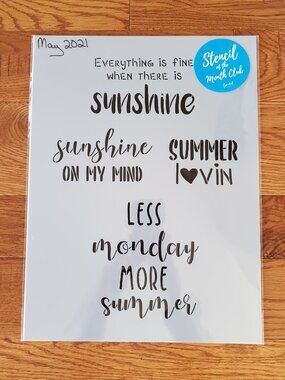 May 2021
Stencil
of the
Month Club
EVERYTHING IS FINE
WHEN THERE IS
sunshine
sunshine
ON MY MIND
SUMMER
l♥vin
LESS
monday
MORE
summer